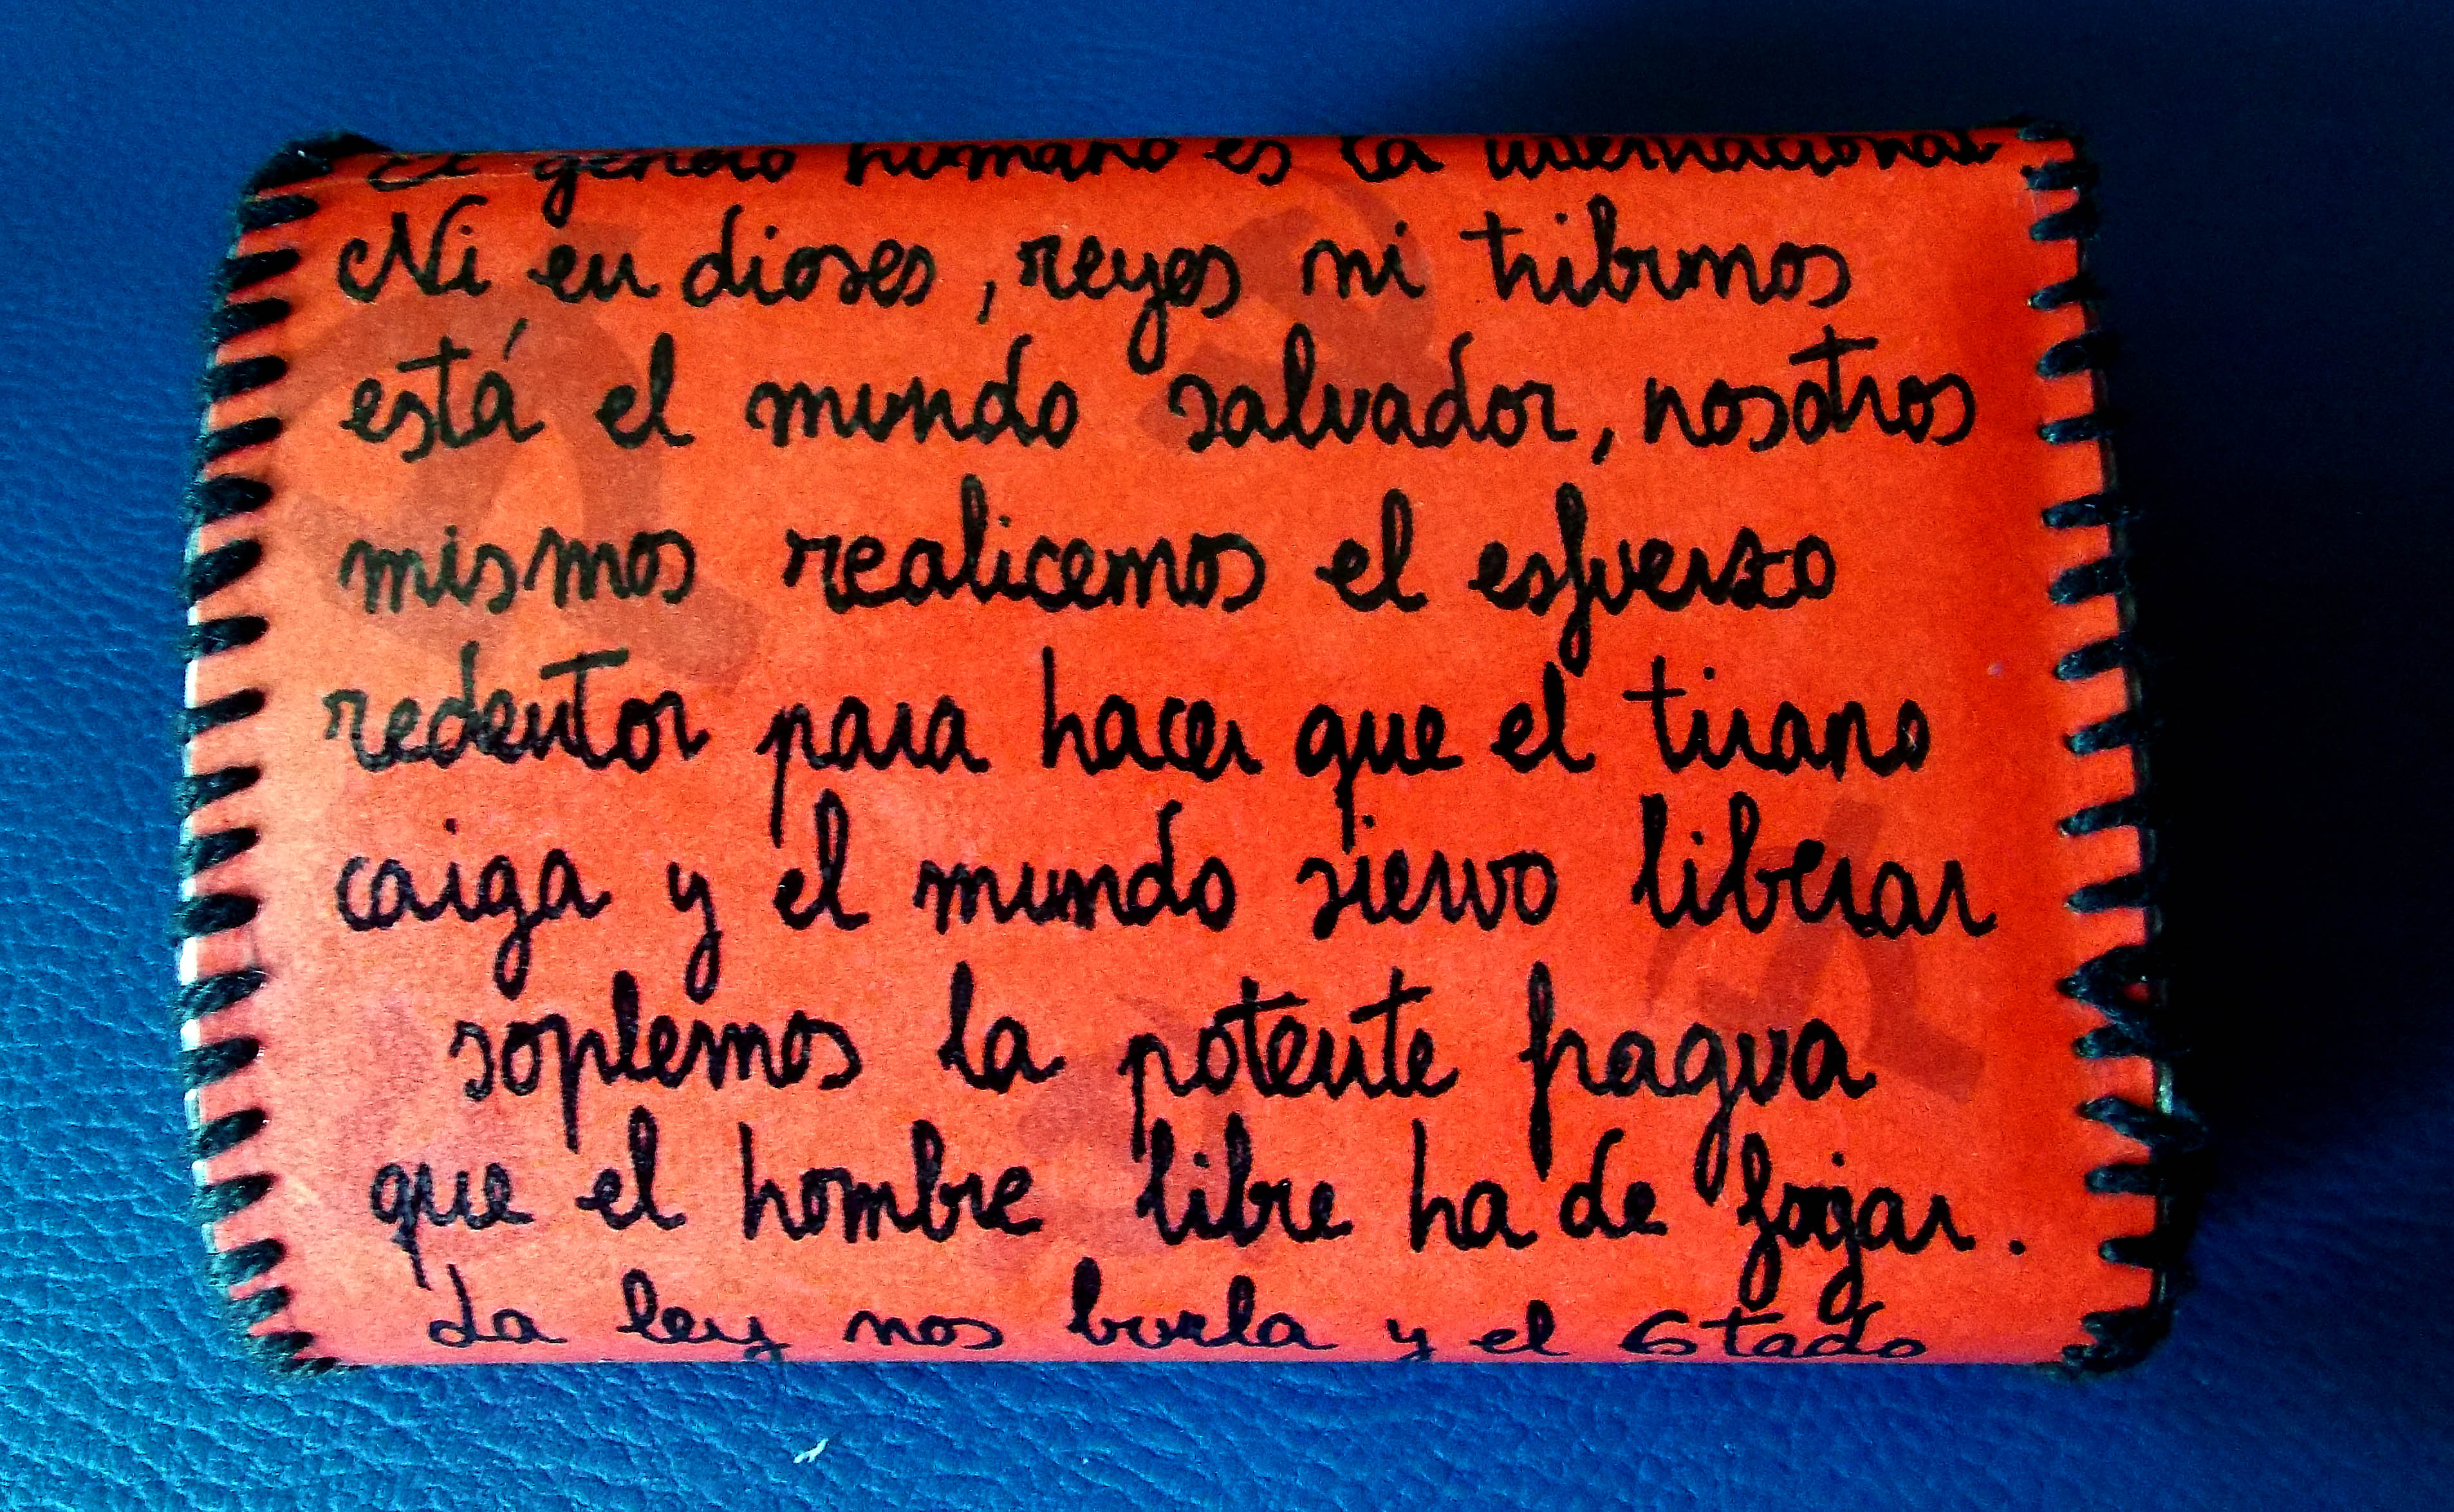 El género humano es la internacional
Ni en dioses, reyes ni tribunos
está el mundo salvador, nosotros
mismos realicemos el esfuerzo
redentor para hacer que el tirano
caiga y el mundo siervo liberar
soplemos la potente fragua
que el hombre libre ha de fojar.
La ley nos burla y el Estado